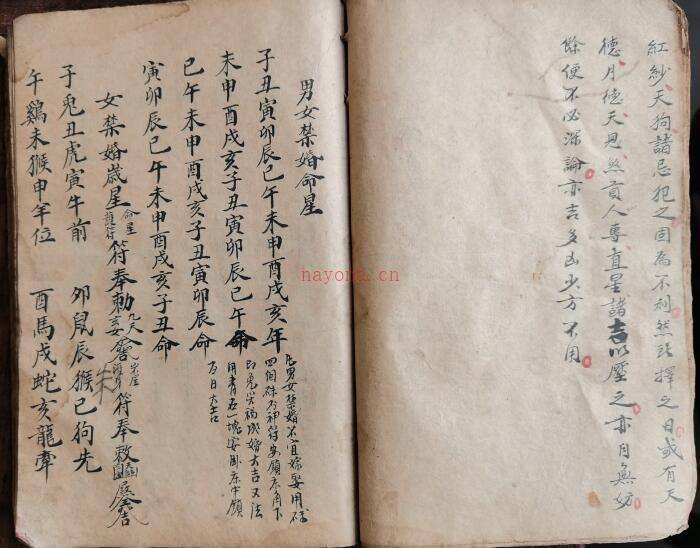 紅紗天狗諸忌犯之固為不利然既擇之日或有天
德月德天恩煞貢人專直星諸吉以壓之亦自無妨
餘便不必深論亦吉多凶少方不用
男女禁婚命星
子丑寅卯辰巳午未申酉戌亥年
未申酉戌亥子丑寅卯辰巳午命
巳午未申酉戌亥子丑寅卯辰命
寅卯辰巳午未申酉戌亥子丑命
凡男女禁婚不宜嫁娶用硃
四個硃神符安鎮床角下
即免災禍成婚大吉又法
用青石一塊安臥床下鎮
百日大吉
女禁婚歲星
命星
護符
符奉勅
九天
符奉敕
子兔丑虎寅牛前
卯鼠辰猴巳狗先
午鷄未猴申羊位
酉馬戌蛇亥龍牽
nayona.cn